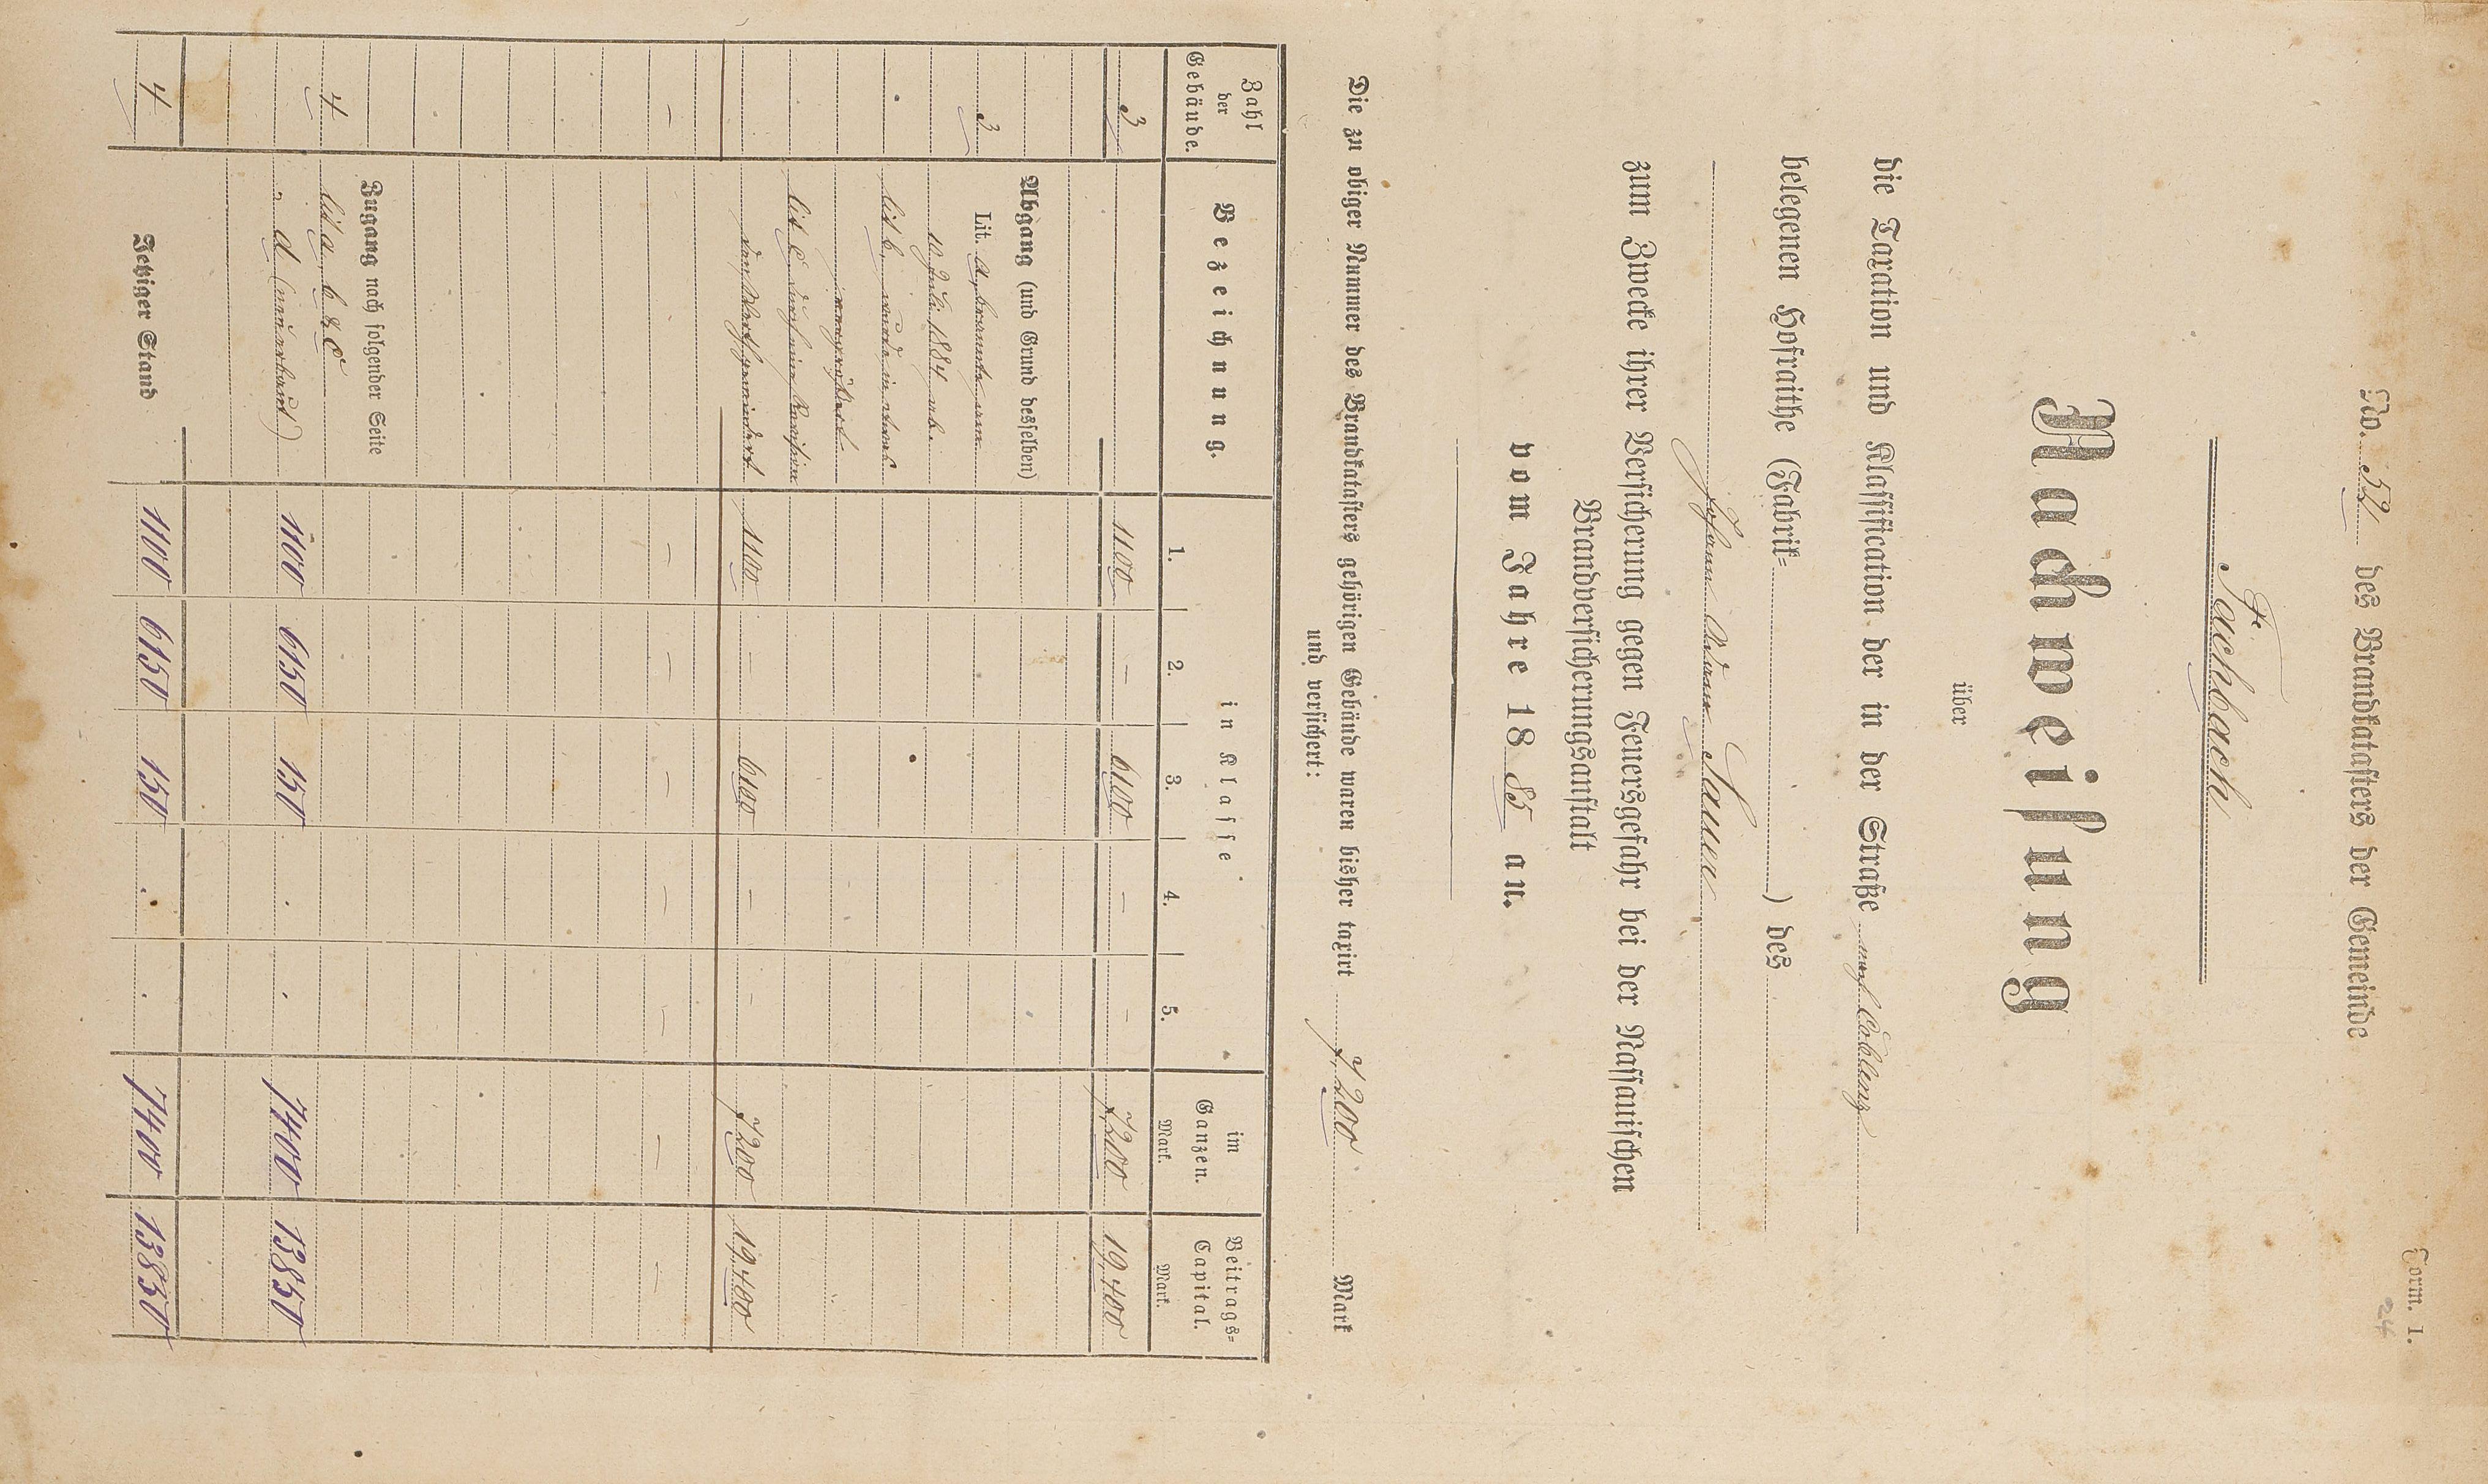 Form. I.
24
No. 52 des Brandkatasters der Gemeinde
Fachbach
Nachweisung
über
die Taxation und Klassification der in der Straße nach Coblenz
belegenen Hofraithe (Fabrik= ) des
Johann Adam Sauer
zum Zwecke ihrer Versicherung gegen Feuersgefahr bei der Nassauischen
Brandversicherungsanstalt
vom Jahre 1885 an.
Die zu obiger Nummer des Brandkatasters gehörigen Gebäude waren bisher taxirt 7,200 Mark
und versichert:
Zahl der Gebäude. Bezeichnung. in Klasse im Ganzen. Beitrags= Capital.
1. 2. 3. 4. 5. Mark. Mark.
3 1100 — 6100 — — 7,200 19,400
Abgang (und Grund desselben)
3 Lit. a, brannte am
10 Juli 1884 ab.
lit b, wurde in etwas
lit c durch eine Revision
1100 — 6100 — — 7,200 19,400
— — — — — — — —
Zugang nach folgender Seite
4 lit a, b & c
" d (neuerbaut) 1100 6150 150 . . 7400 13850
4 Jetziger Stand 1100 6150 150 . . 7400 13850